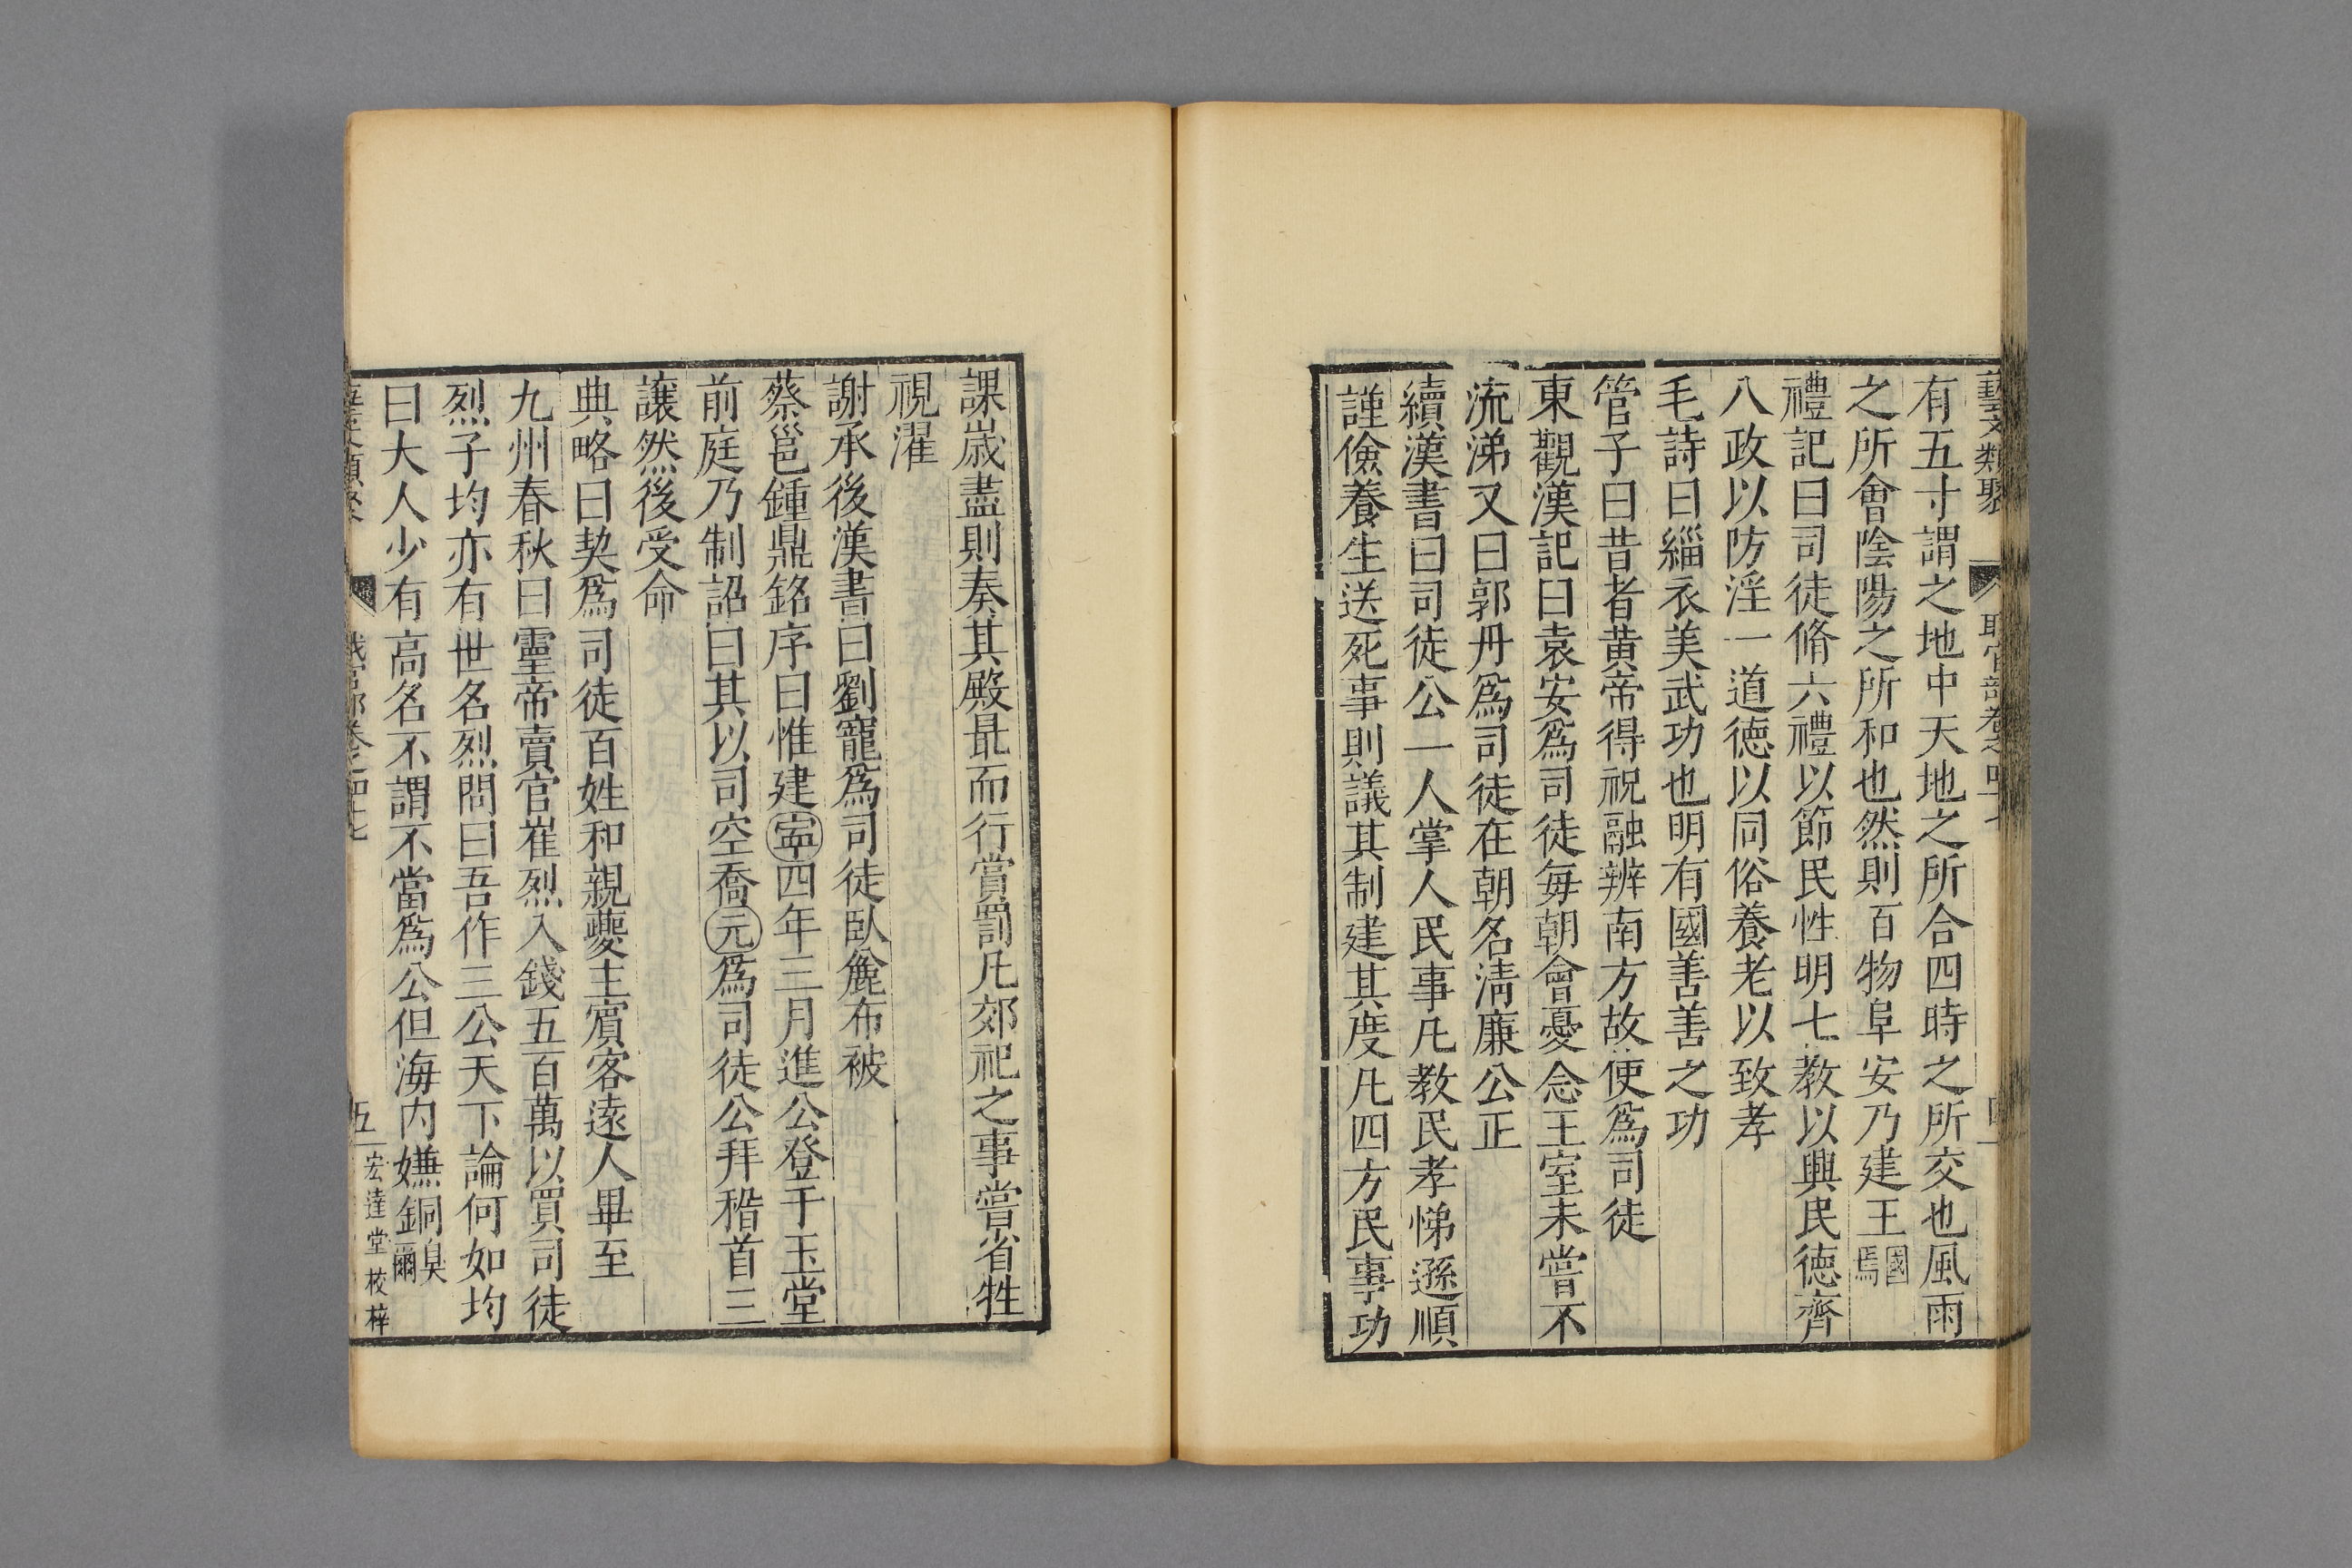 藝文類聚 職官部卷之四十七 四
有五寸謂之地中天地之所合四時之所交也風雨
之所會陰陽之所和也然則百物阜安乃建王國焉
禮記曰司徒脩六禮以節民性明七教以興民德齊
八政以防淫一道德以同俗養老以致孝
毛詩曰緇衣美武功也明有國善善之功
管子曰昔者黃帝得祝融辨南方故使爲司徒
東觀漢記曰袁安爲司徒每朝會憂念王室未嘗不
流涕又曰郭丹爲司徒在朝名淸廉公正
續漢書曰司徒公一人掌人民事凡教民孝悌遜順
謹儉養生送死事則議其制建其度凡四方民事功
課歲盡則奏其殿最而行賞罰凡郊祀之事嘗省牲
視濯
謝承後漢書曰劉寵爲司徒臥麁布被
蔡邕鍾鼎銘序曰惟建寧四年三月進公登于玉堂
前庭乃制詔曰其以司空喬元爲司徒公拜稽首三
讓然後受命
典略曰契爲司徒百姓和親夔主賓客遠人畢至
九州春秋曰靈帝賣官崔烈入錢五百萬以買司徒
烈子均亦有世名烈問曰吾作三公天下論何如均
曰大人少有高名不謂不當爲公但海內嫌銅臭爾
藝文類聚 職官部卷之四十七 五 宏達堂校梓